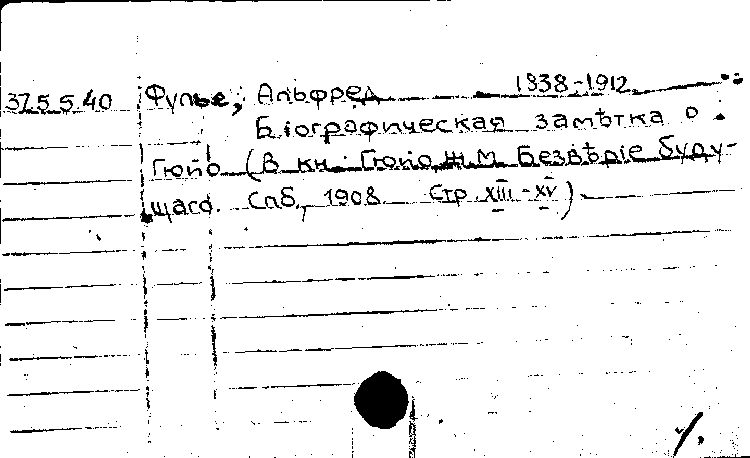 37.5.5.40 Фулье, Альфред 1838-1912
Біографическая замѣтка о
Гюйо (В кн: Гюйо, Ж.М. Безвѣріе буду-
щаго. Спб., 1908. Стр. XIII-XV)